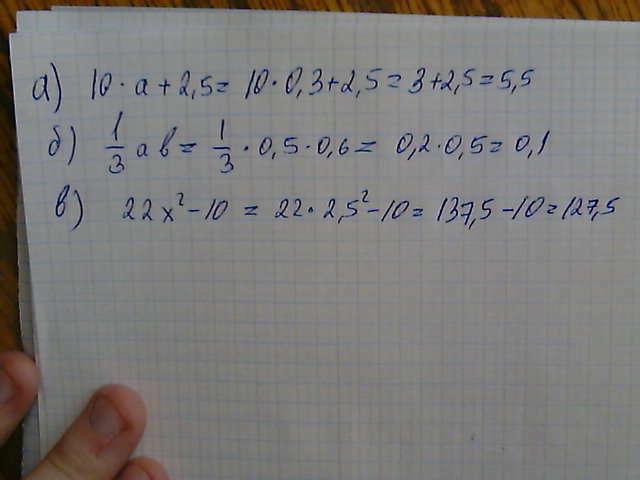 а) 10 · a + 2,5 = 10 · 0,3 + 2,5 = 3 + 2,5 = 5,5
б) 1/3 a b = 1/3 · 0,5 · 0,6 = 0,2 · 0,5 = 0,1
в) 22x² - 10 = 22 · 2,5² - 10 = 137,5 - 10 = 127,5